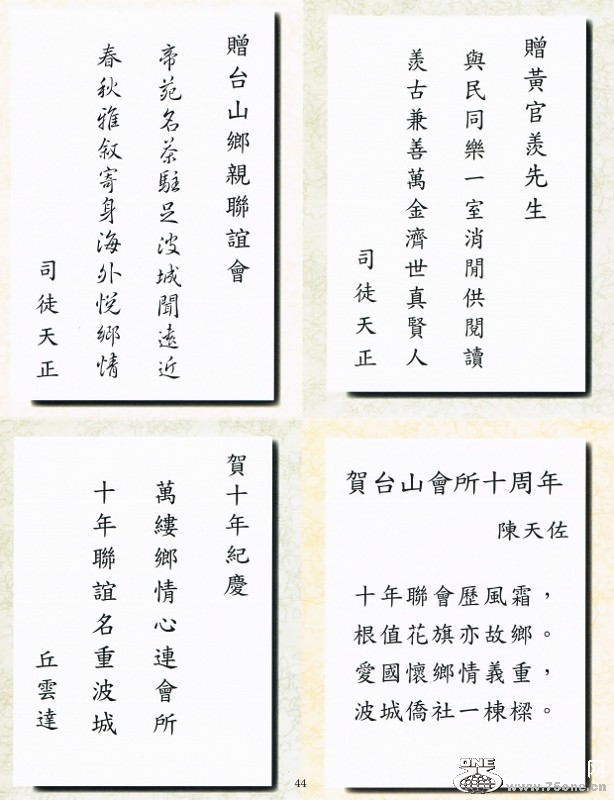 贈台山鄉親聯誼會
帝苑名茶駐足波城聞遠近
春秋雅敘寄身海外悅鄉情
司徒天正
贈黃官羨先生
與民同樂一室消閒供閱讀
羨古兼善萬金濟世真賢人
司徒天正
賀十年紀慶
萬縷鄉情心連會所
十年聯誼名重波城
丘雲達
賀台山會所十周年
陳天佐
十年聯會歷風霜，
根值花旗亦故鄉。
愛國懷鄉情義重，
波城僑社一棟樑。
44
ONE
网
www.75one.cn